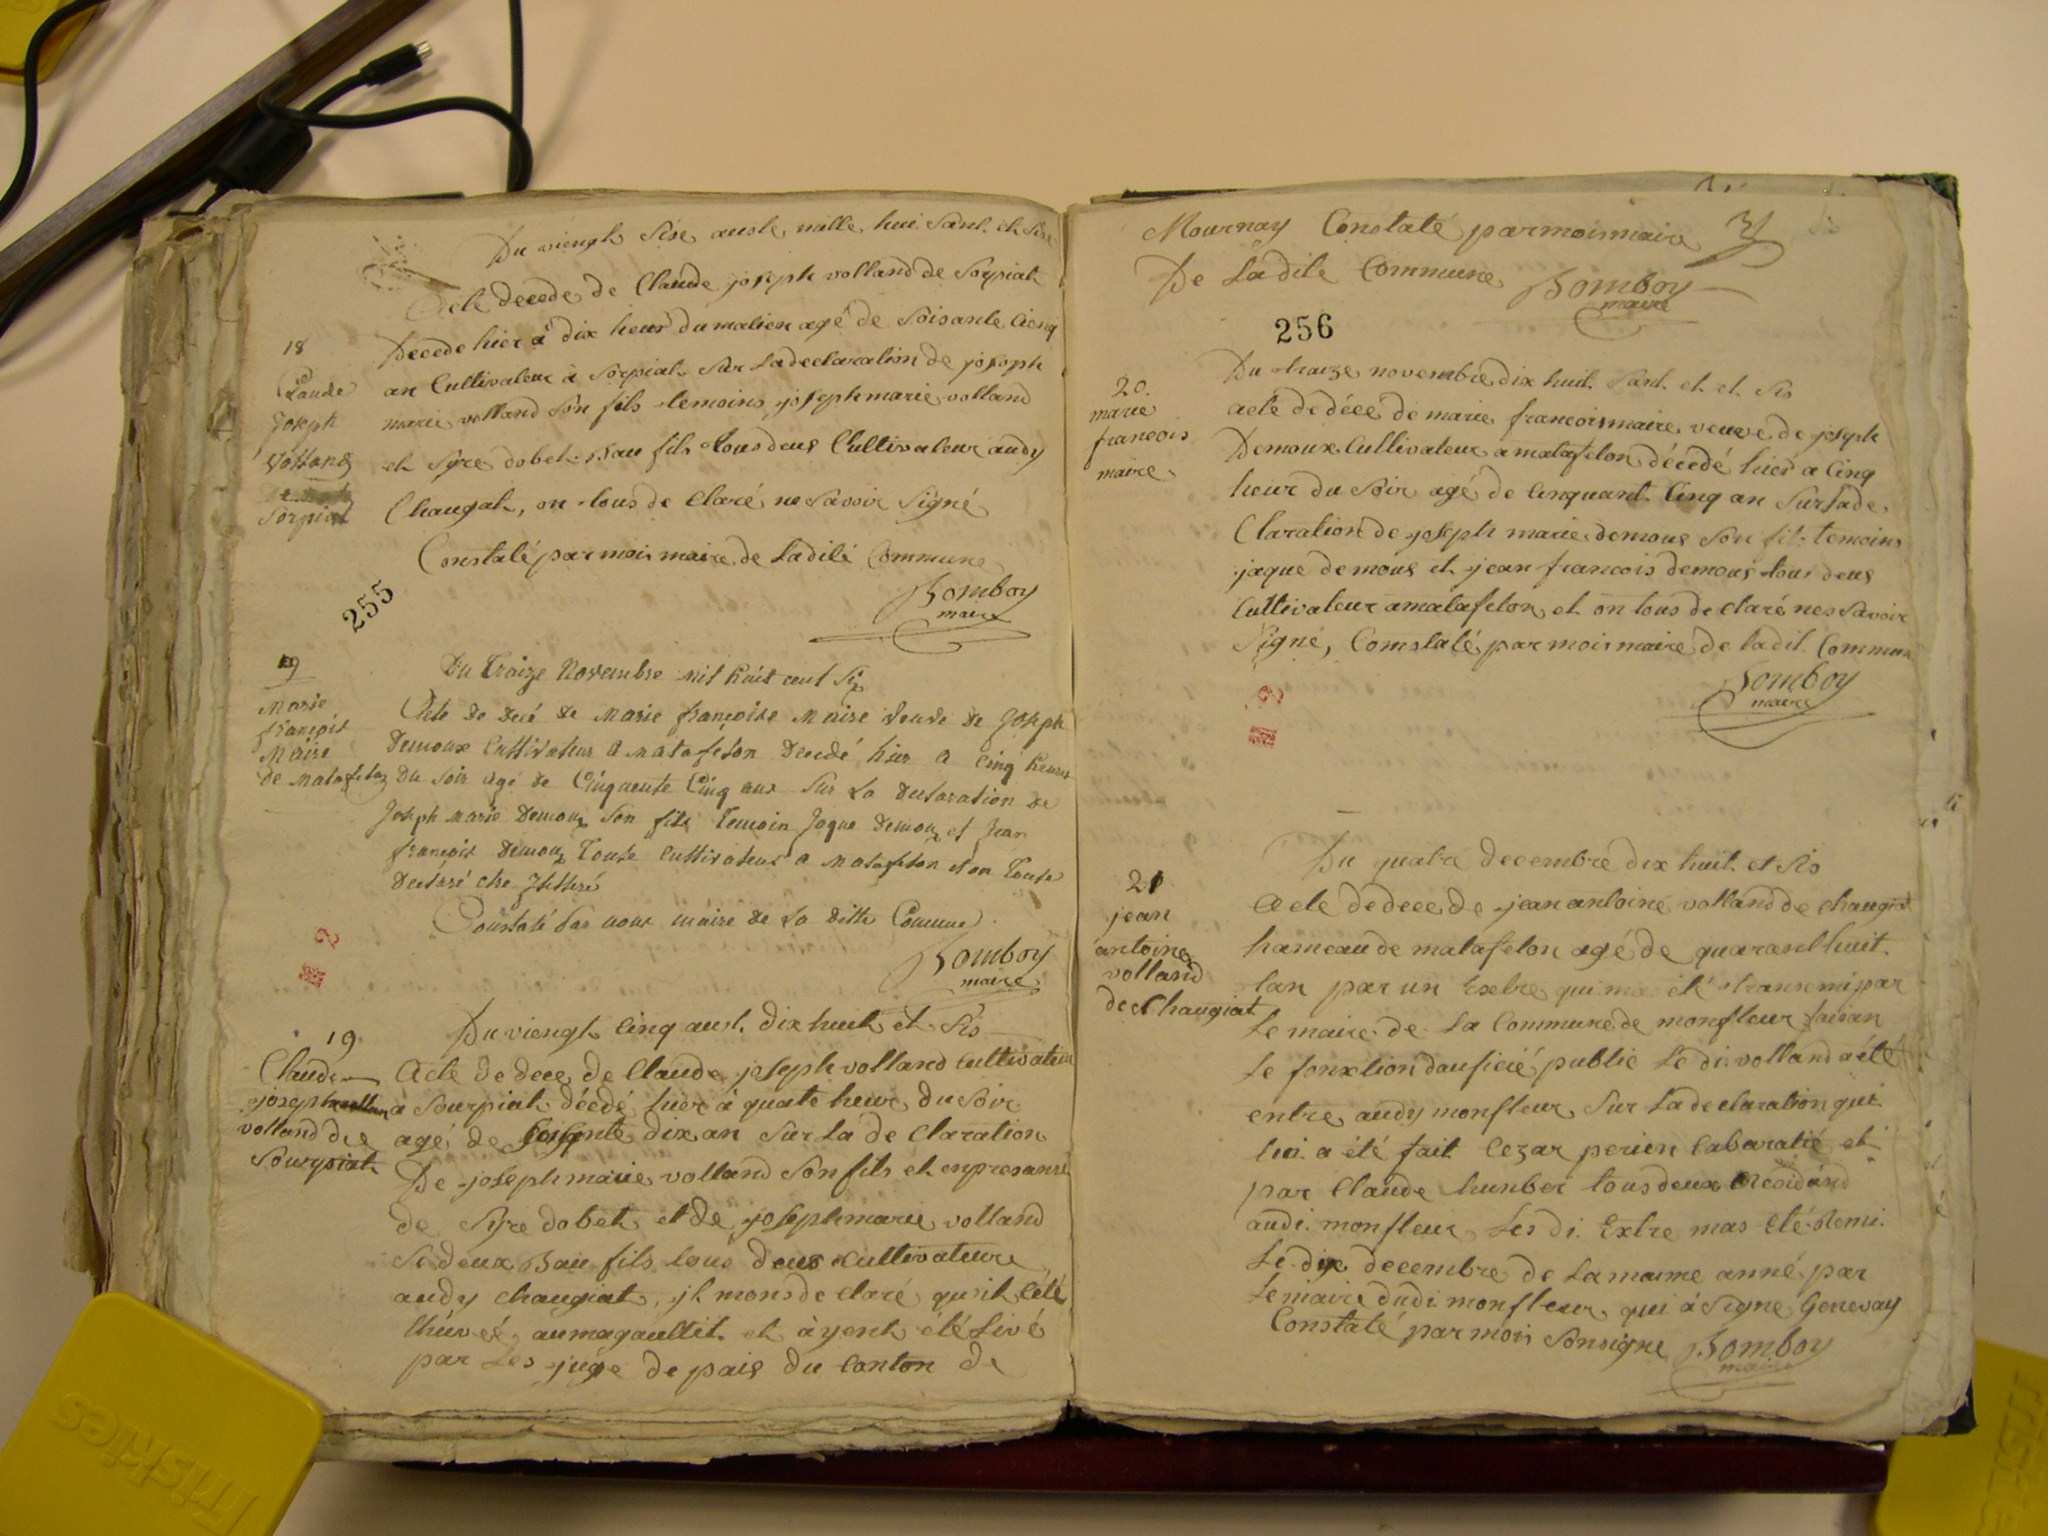 Du viengt Sise auste mille hui Sant et Sise
acte decede de Claude joseph volland de Sorpiat
Decede hier à dix heur du matien agé de Soisante Cienq
an Cultivateur à Sorpiat Sur La declaration de joseph
marie volland Son fils temoins joseph marie volland
et Syre dobet Bau fils tous deus Cultivateur audy
Chaugat, on tous de Claré ne Savoir Signé
Constaté par moi maire de Ladite Commune
Bomboy
maire
18
Claude
Joseph
Volland
Sorpiat
255
19
Marie
françoist
Maire
de Matafelon
Du Traize Novembre mil huit cent Six
Acte De Decé De Marie françoise Maire veuve De Joseph
Demoux Cultivateur a Matafelon Decedé hier a Cinq heures
Du Soir agé de Cinquente Cinq ans Sur La Declaration De
Joseph Marie Demoux Son fils Temoin Jaque Demoux et Jean
françoist Demoux Touts Cultivateurs a Matafelon et on Touts
Declaré etre Illitteré
Constaté Par nous maire De La Ditte Commune
Bomboy
maire
Du viengt Cinq aust dix huit et Sis
19
Claude
joseph
volland de
Sourpiat
Acte de dece de Claude joseph volland Cultivateur
à Sourpiat décedé hier à quate heur du Soir
agé de Soisente dix an Sur La de Claration
De joseph marie volland Son fils et en presanse
de Syre dobet et de joseph marie volland
Se deux Bau fils tous deus Cultivateur
audy Chaugiat, il mons de Claré qu'il
au magaultit et àyent été Livé
par Les juge de pais du Canton de
Mournay Constaté par moi maire
De Ladite Commune Bomboy
maire
256
20.
marie
francois
maire
Du traize novembre dix huit Sant et et Sis
acte de décé de marie francois maire veuve de joseph
Demoux Cultivateur a matafelon décedé hier a Cinq
heur du Soir agé de Cinquant Cinq an Sur La de
Claration de joseph marie demous Son fils temoins
jaque demous et jean francois demous tous deus
Cultivateur a matafelon et on tous de Claré nes Savoir
Signé, Constaté par moi maire de ladit Commun
Bomboy
maire
21
jean
antoine
volland
de Chaugiat
Du quatre decembre dix huit et Sis
acte de dece de jean antoine volland de Chaugiat
hameau de matafelon agé de quarant huit
tan par un Extre qui ma eté transmi par
Le maire de La Commune de monfleur faisan
Le fonxtion d'auficié public Le di volland a été
entre audy monfleur Sur La declaration qui
lui a été fait Cezar perien Cabaratié et
par Claude hunber tous deux
audi monfleur Les di Extre mas Eté Remi
Le dix decembre de La maime anné par
Le maire dudi monfleur qui à Signe Genevay
Constaté par moi Sonsigne Bomboy
maire
friskies